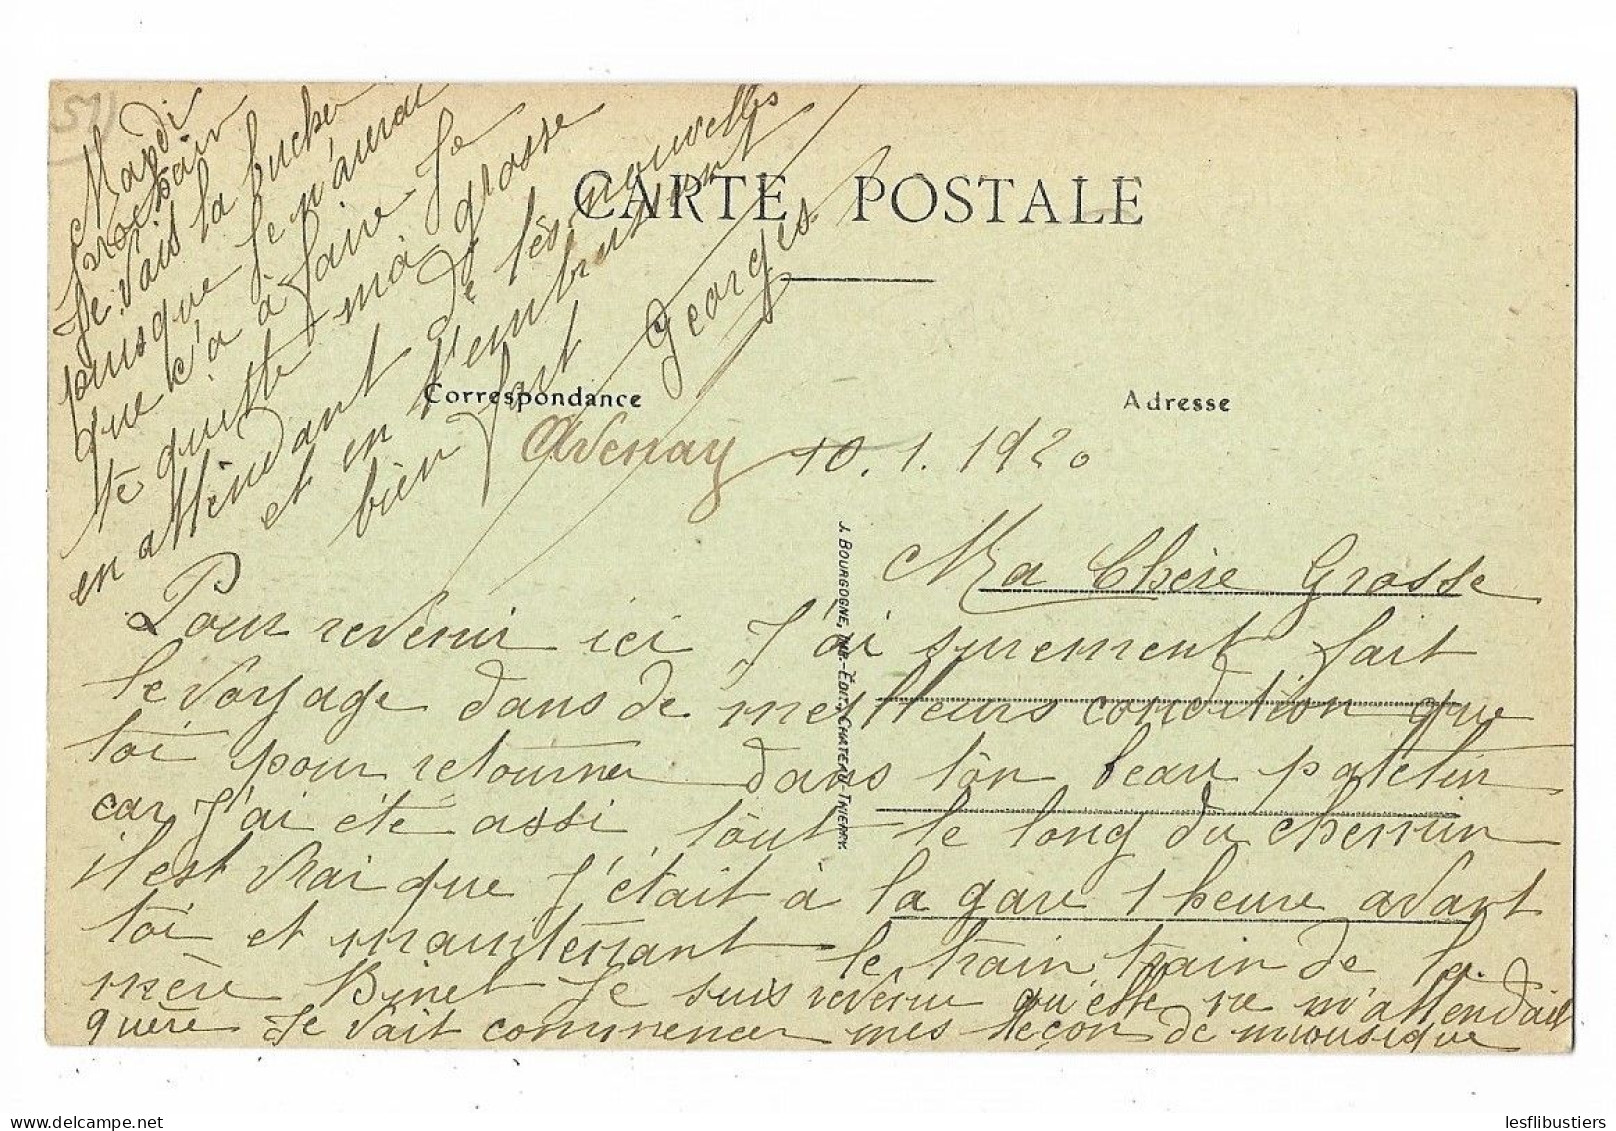 51)
CARTE POSTALE
Correspondance
Adresse
Avenay 10.1.1920
Ma Chère Grosse
Pour revenir ici J'ai surement fait
le voyage dans de meilleurs condition que
toi pour retourner dans ton beau patelin
car J'ai été assi tout le long du chemin
il est vrai que J'était à la gare 1 heure avant
toi et maintenant le train train de la
mère Binet Je suis revenu qu'elle ne m'attendait
guère Je vait commencer mes leçon de miousique
Mardi
prochain
Je vais la bucher
puisque Je n'aurai
que ç'a à faire. Je
te quitte ma grosse
en attendant de tes nouvelles
et en t'embrassant
bien fort Georges
J. BOURGOGNE, IMP.-ÉDIT., CHATEAU-THIERRY.
lesflibustiers